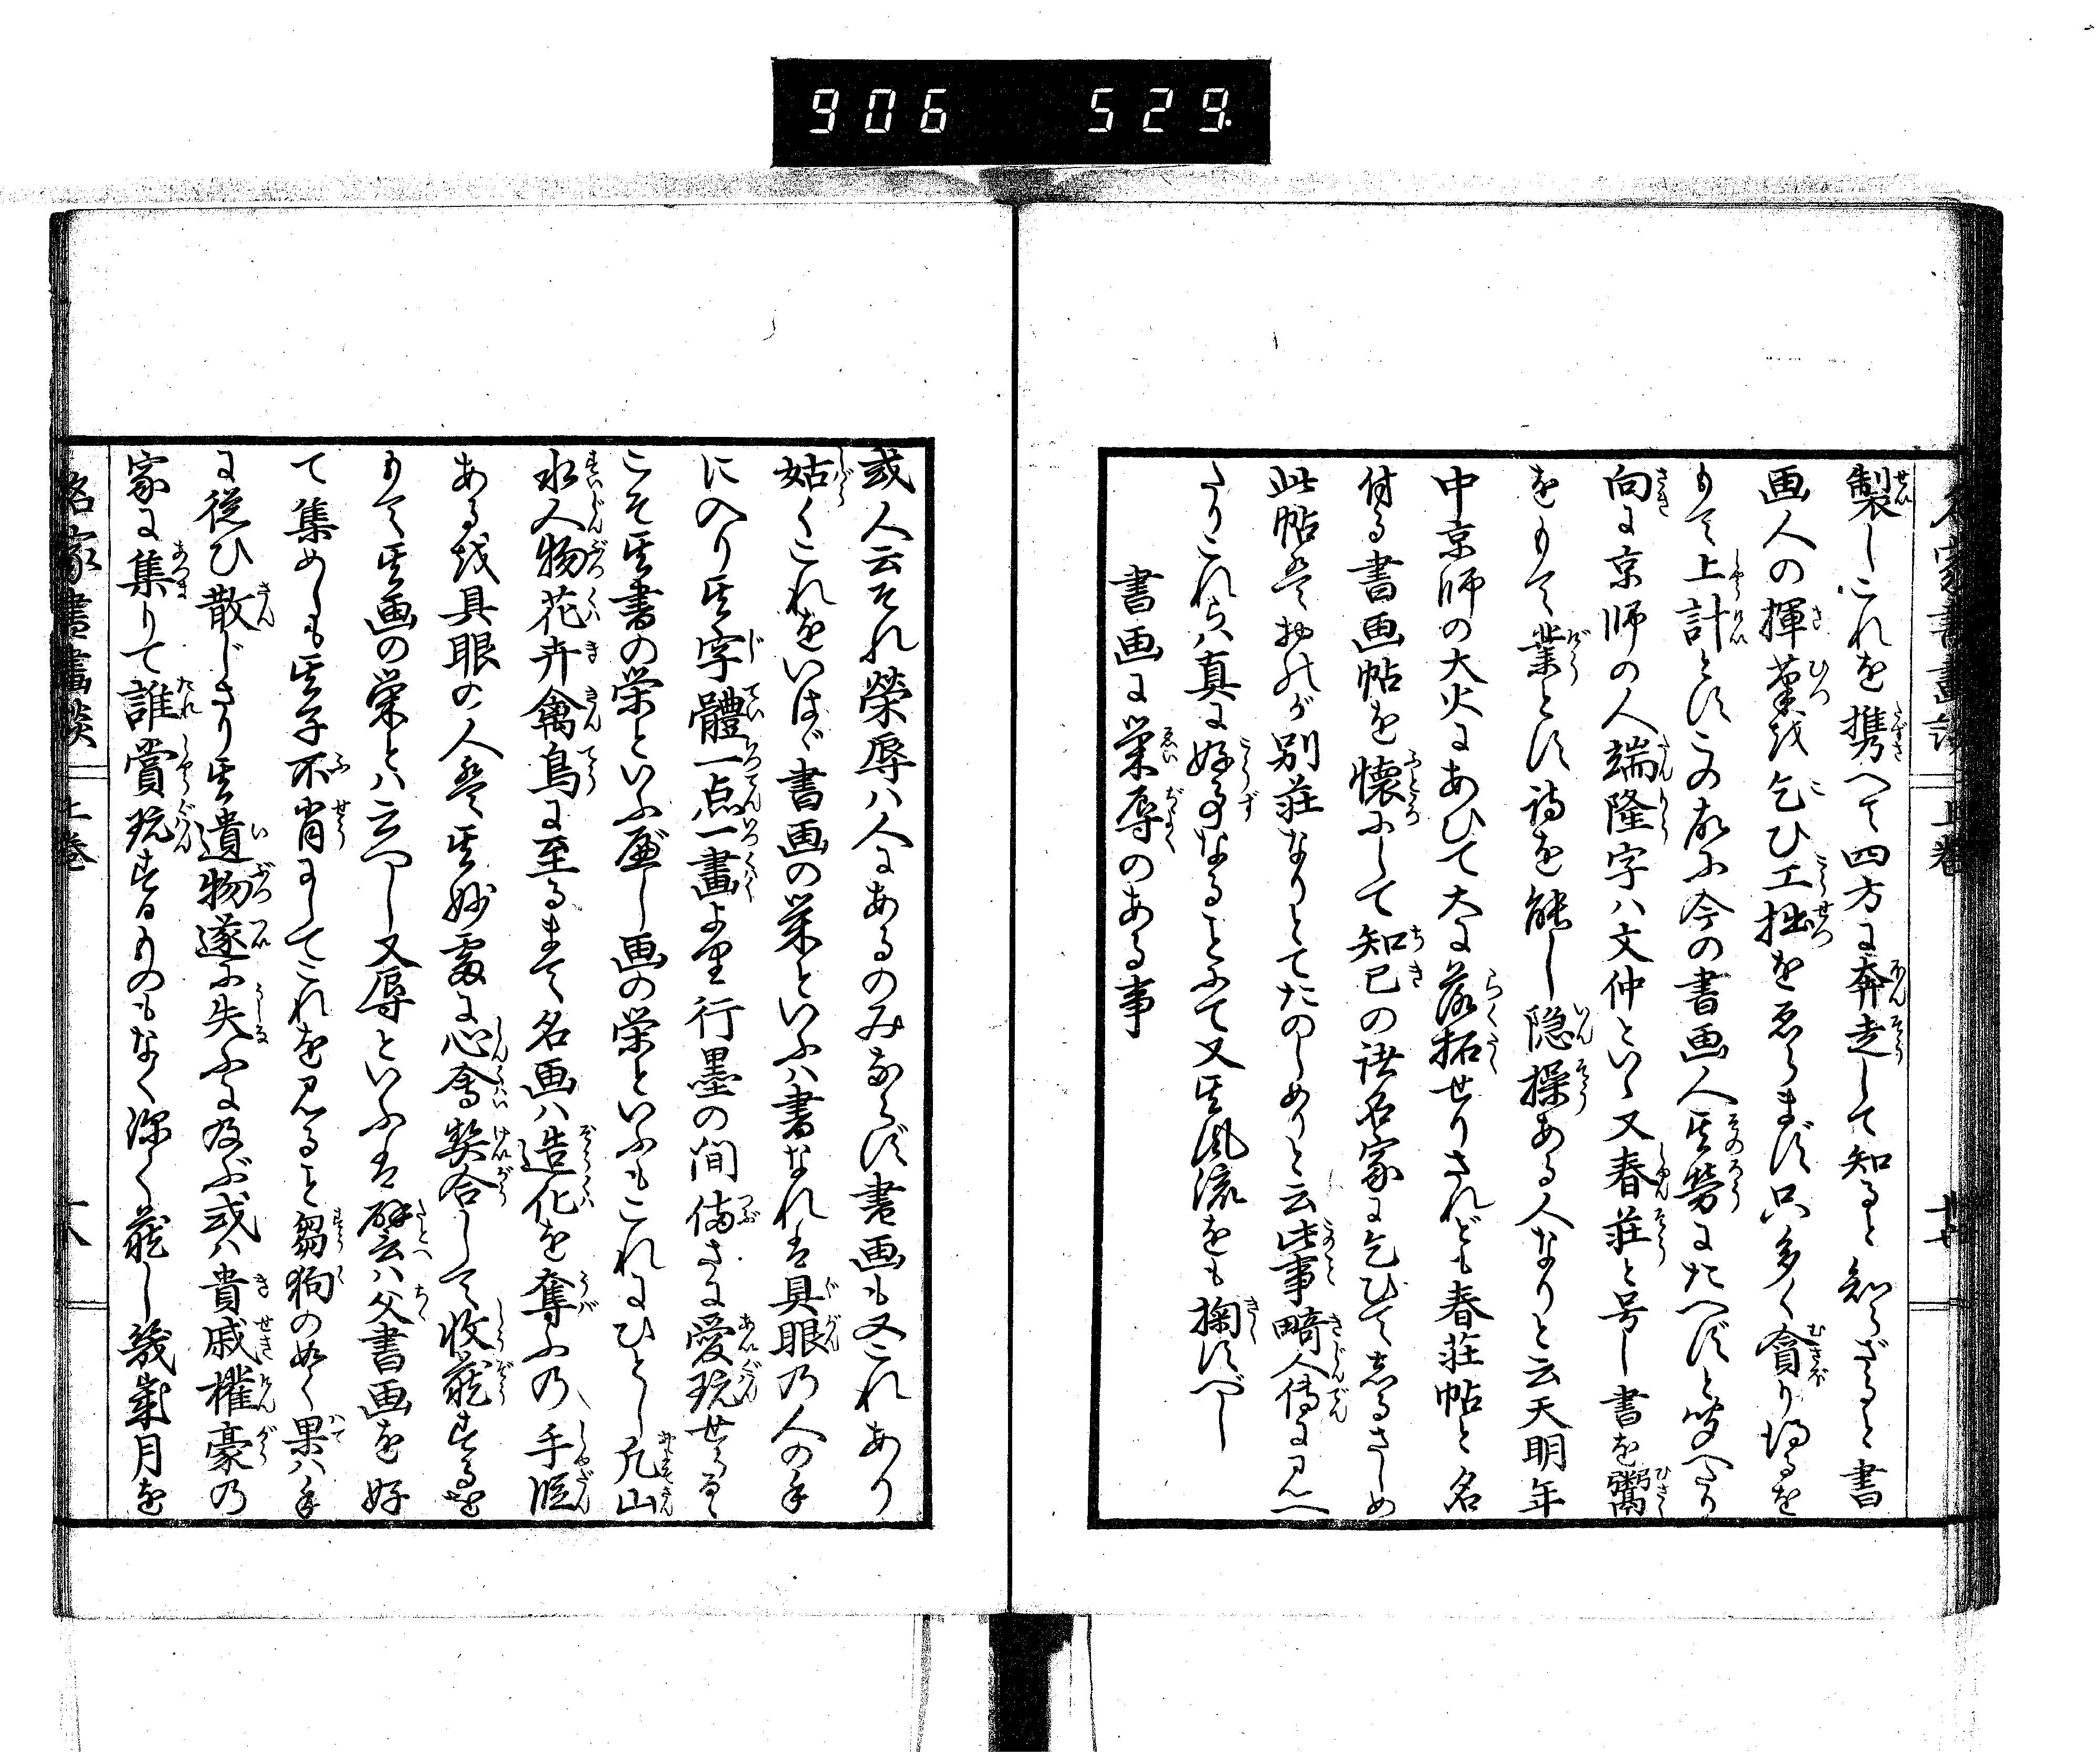 906 529
名家書畫談 上巻
製しこれを携へて四方に奔走して知ると知らざると書
画人の揮筆を乞ひ工拙をゑらまず只多く貪り得るを
もて上計とすこの故に今の書画人其労にたへずと聞へたり
向に京師の人端隆字ハ文仲といふ又春荘と号し書を鬻
をもて業とす詩を能し隠操ある人なりと云天明年
中京師の大火にあひて大に落拓せりされども春荘帖と名
付る書画帖を懐にして知己の諸名家に乞ひてしるさしめ
此帖是わが別荘なりとてたのしめりと云此事畸人傳に見へ
たりこれらハ真に好事なることにて又其風流をも掬すべし
書画に栄辱のある事
或人云それ榮辱ハ人にあるのみならず書画も又これあり
姑くこれをいはゞ書画の栄といふハ書なれば具眼の人の手
に入り其字體一点一畫より行墨の間備さに愛玩せらるゝ
こそ其書の栄といふべし画の栄といふもこれにひとし凡山
水人物花卉禽鳥に至るまで名画ハ造化を奪ふの手段
あるを具眼の人是其妙處に心會契合して收藏するを
もて其画の栄とハ云べし又辱といふは譬ハ父書画を好
て集めしも其子不肖にしてこれを見ること芻狗の如く果ハ手
に従ひ散じさり其遺物遂に失ふに及ぶ或ハ貴戚權豪の
家に集りて誰賞玩するものもなく深く藏し幾歳月を
名家書畫談 上巻